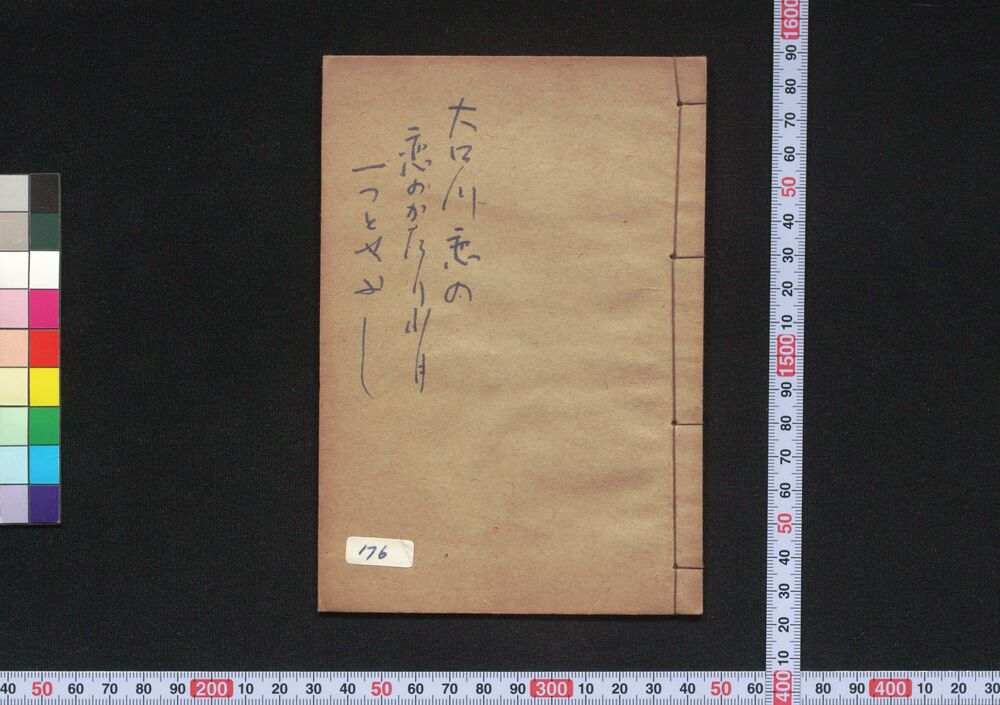 大口川恋の
恋のかたり川
一つとせ
176
1600
90
80
70
60
50
40
30
20
10
1500
90
80
70
60
50
40
30
20
10
400
40 50 60 70 80 90 200 10 20 30 40 50 60 70 80 90 300 10 20 30 40 50 60 70 80 90 400 10 20 30